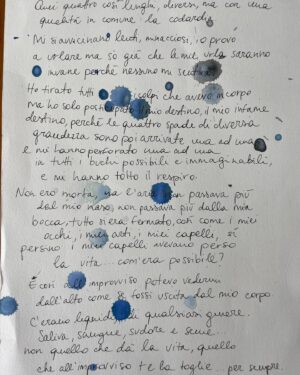 quei quattro così lunghi, diversi, ma con una
qualità in comune, la codardia.
Mi si avvicinano lenti, minacciosi, io provo
a volare ma so già che le mie urla saranno
invane perché nessuno mi sentirà.
Ho tirato tutti i colpi che avevo in corpo
ma ho solo posticipato il mio destino, il mio infame
destino, perché le quattro spade di diversa
grandezza sono poi arrivate una ad una
e mi hanno perforato una ad una
in tutti i buchi possibili e immaginabili,
e mi hanno tolto il respiro.
Non ero morta, ma l'aria non passava più
dal mio naso, non passava più dalla mia
bocca, tutto si era fermato, così come i miei
occhi, i miei arti, i miei capelli, sì
persino i miei capelli avevano perso
la vita... com'era possibile?
E così all'improvviso potevo vedermi
dall'alto come se fossi uscita dal mio corpo.
C'erano liquidi di qualsiasi genere.
Saliva, sangue, sudore e seme...
non quello che dà la vita, quello
che all'improvviso te la toglie... per sempre.